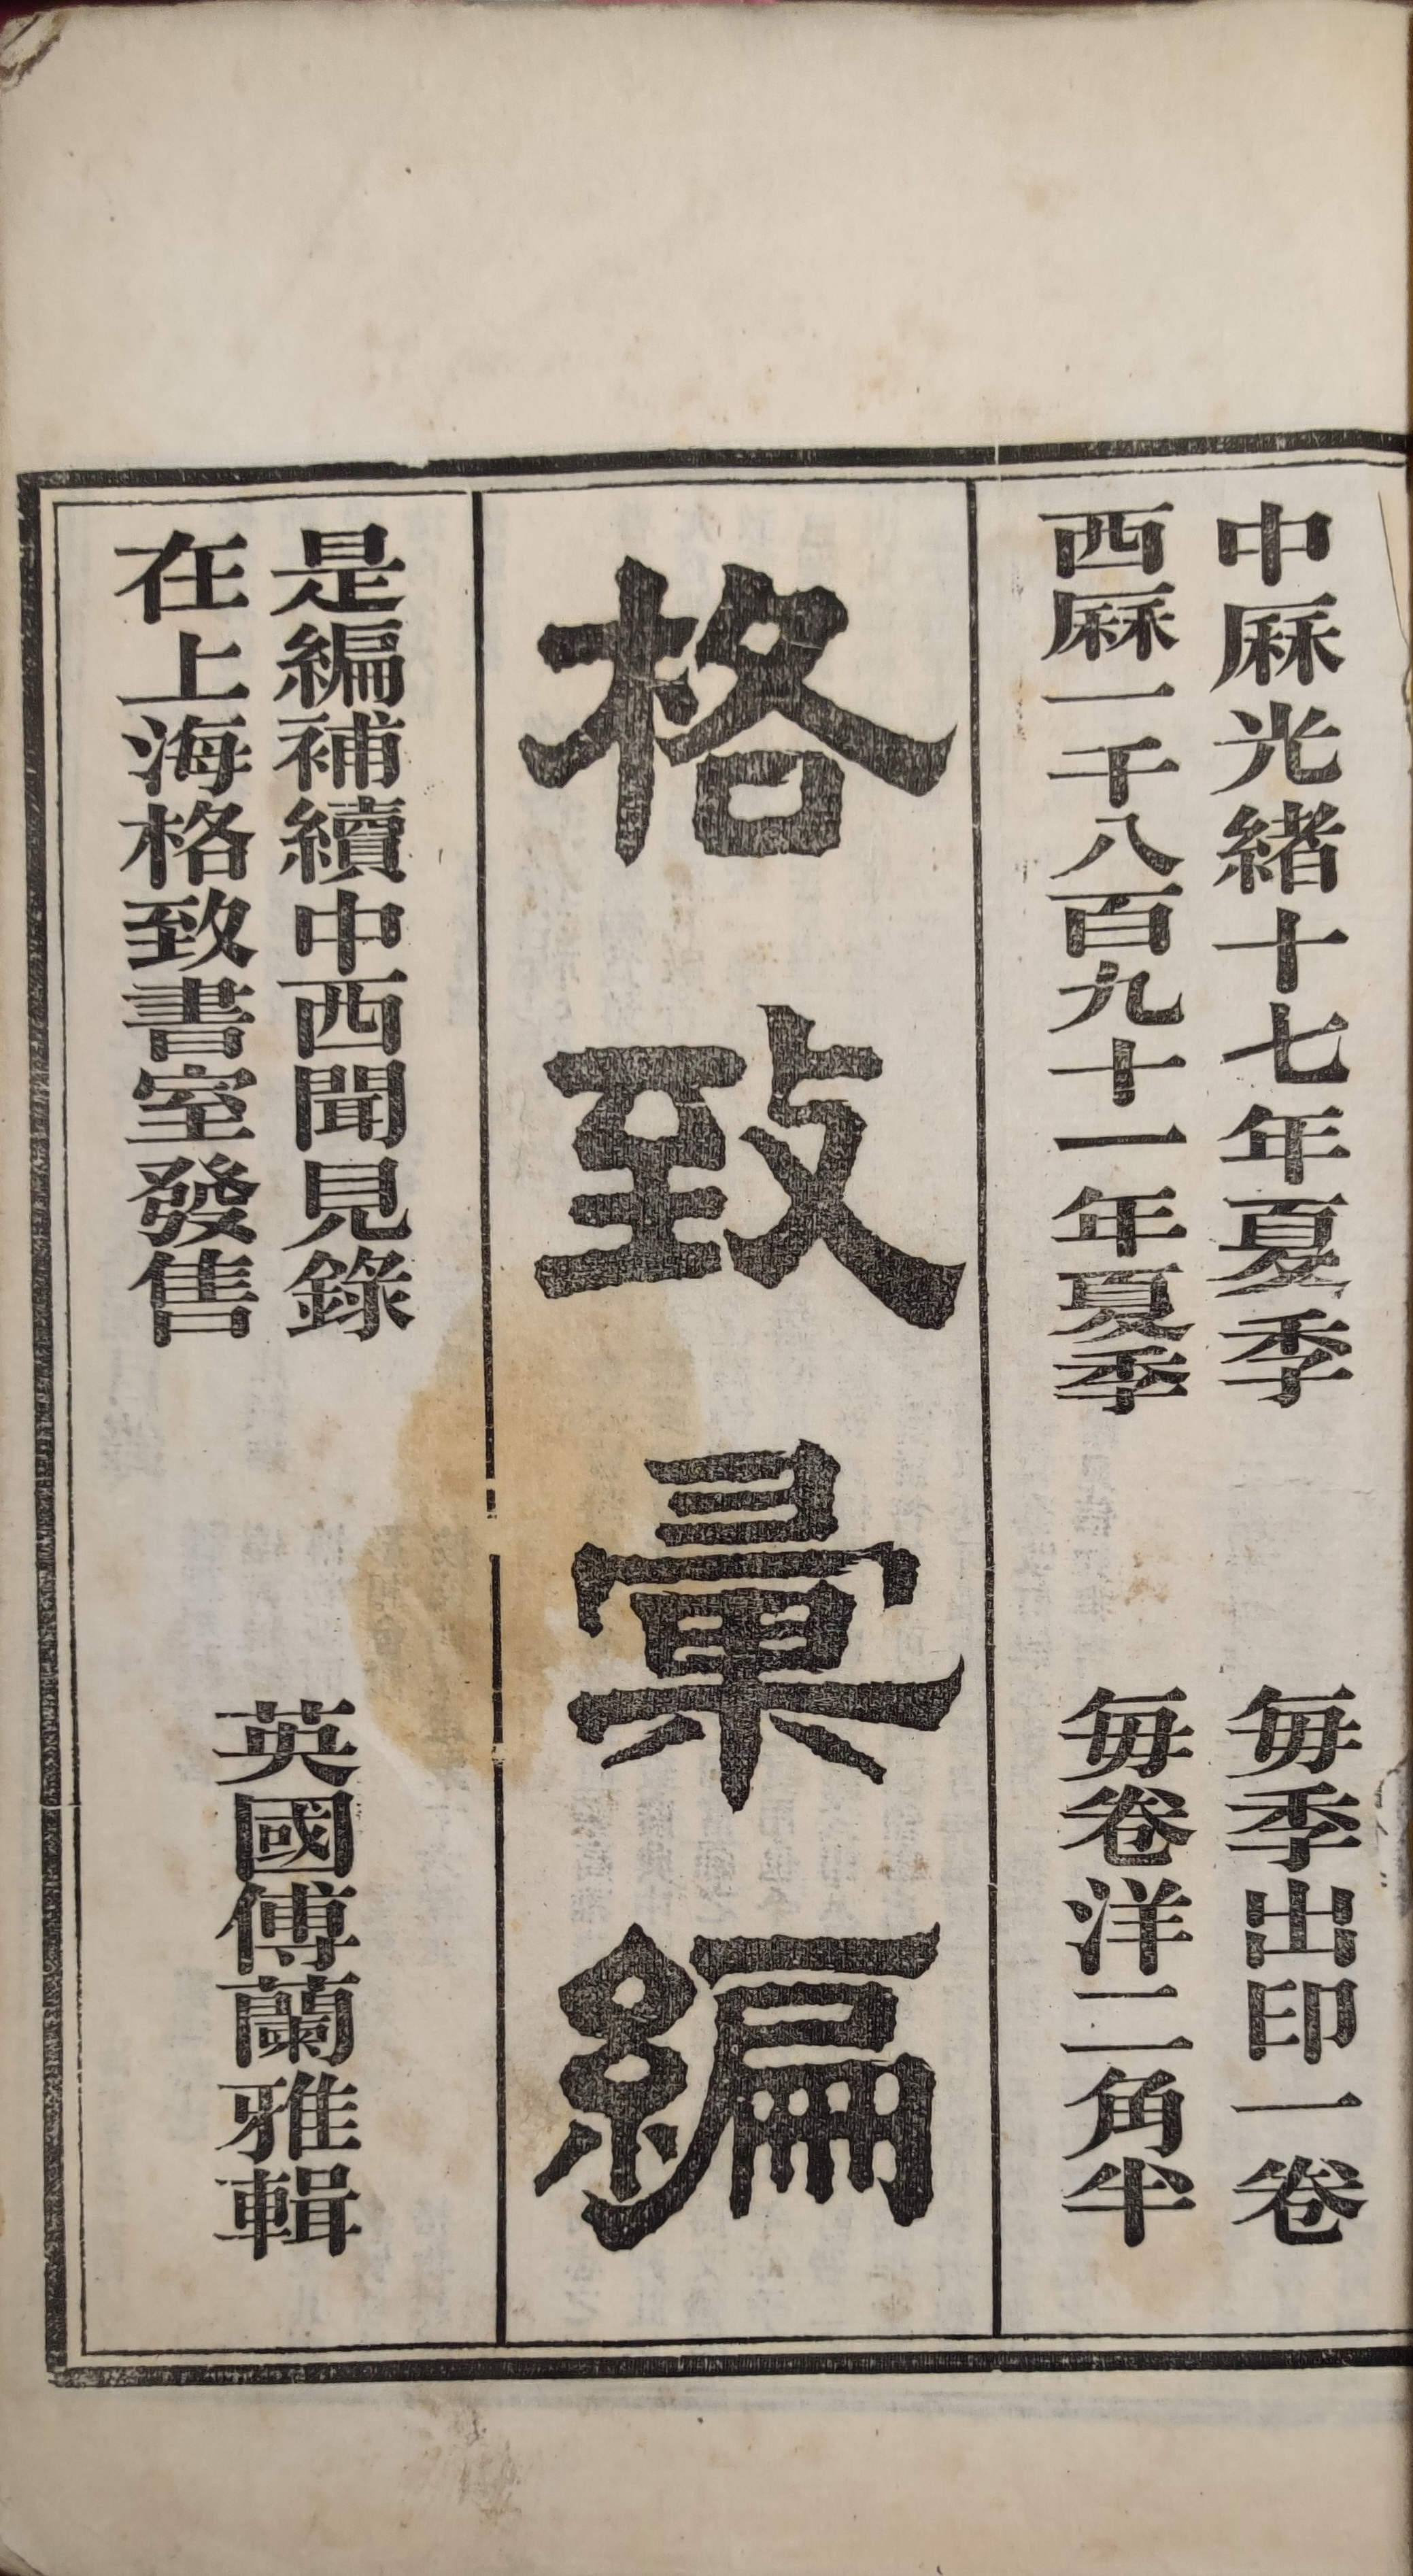 中厤光緒十七年夏季
每季出印一卷
西厤一千八百九十一年夏季
每卷洋二角半
格致彙編
是編補續中西聞見錄
在上海格致書室發售
英國傅蘭雅輯